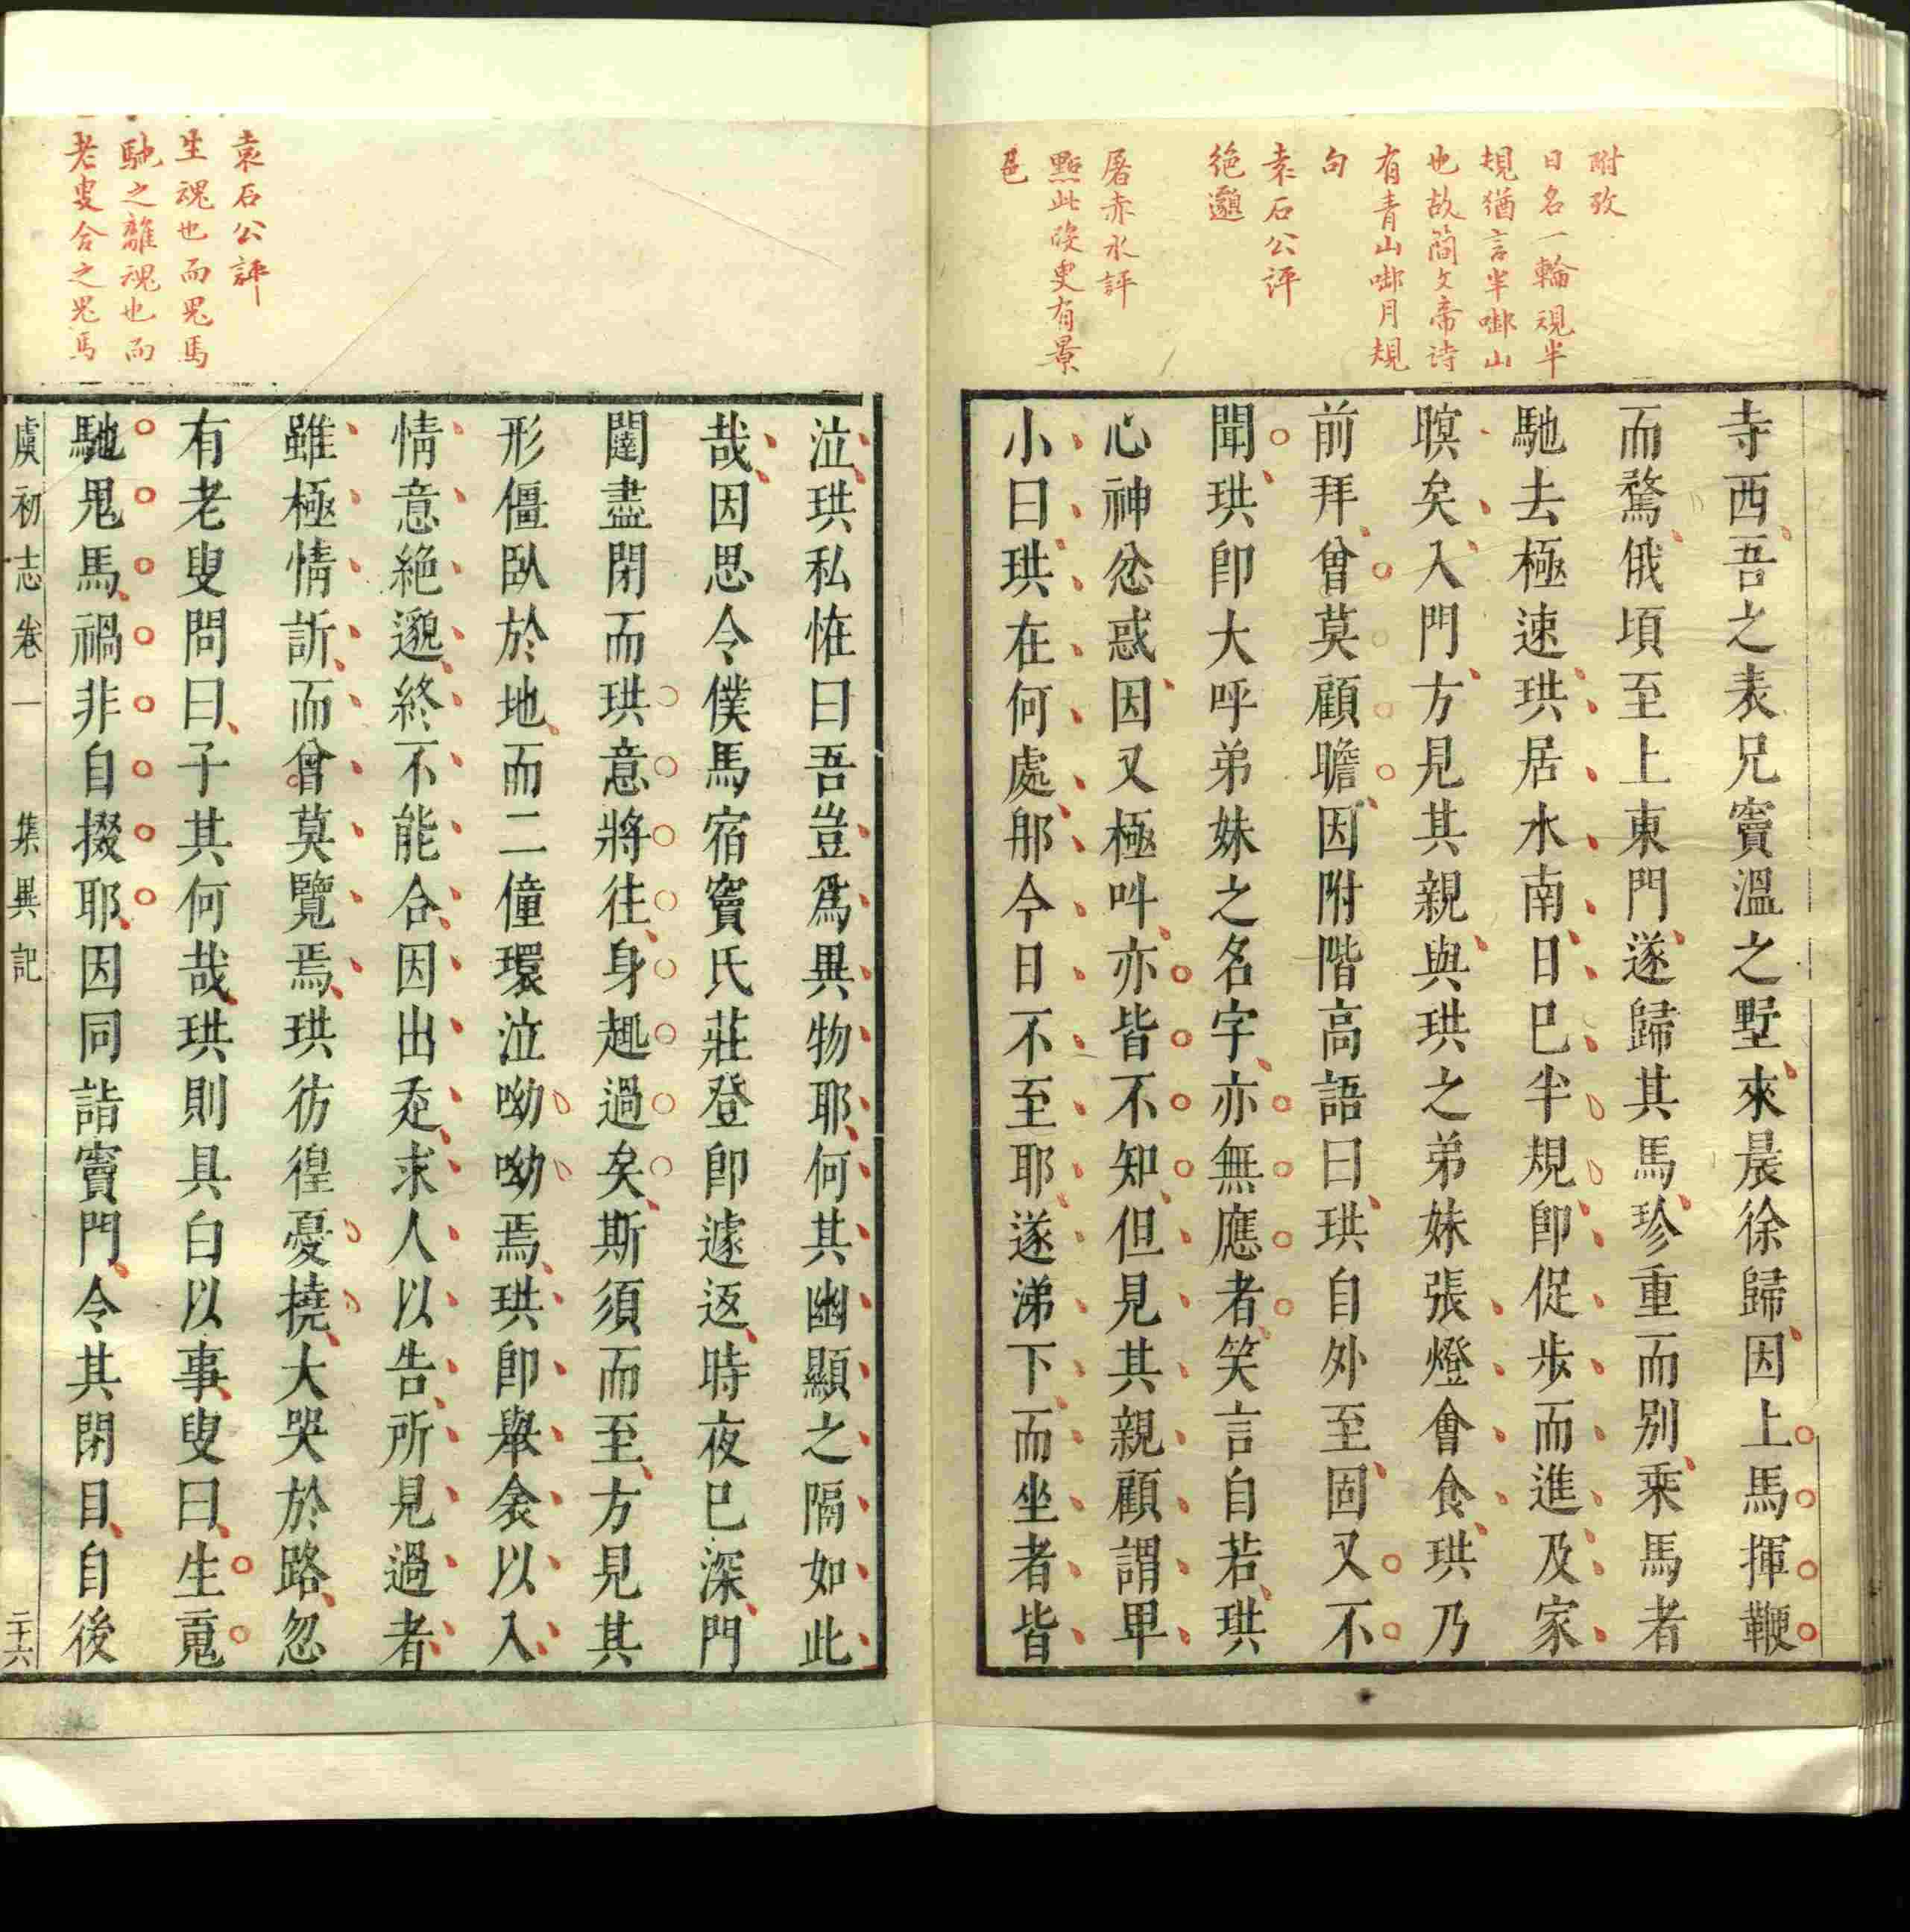 附攷
日名一輪規半
規猶言半啣山
也故簡文帝诗
有青山啣月規
句
袁石公评
絶邈
屠赤水評
點此段更有景
色
寺西吾之表兄竇溫之墅來晨徐歸因上馬揮鞭
而騖俄頃至上東門遂歸其馬珍重而別乘馬者
馳去極速珙居水南日巳半規即促步而進及家
暝矣入門方見其親與珙之弟妹張燈會食珙乃
前拜曾莫顧瞻因附階高語曰珙自外至固又不
聞珙即大呼弟妹之名字亦無應者笑言自若珙
心神忿惑因又極呌亦皆不知但見其親顧謂卑
小曰珙在何處那今日不至耶遂涕下而坐者皆
泣珙私恠曰吾豈爲異物耶何其幽顯之隔如此
哉因思令僕馬宿竇氏莊登即遽返時夜巳深門
闥盡閉而珙意將往身趣過矣斯須而至方見其
形僵臥於地而二僮環泣呦呦焉珙即舉衾以入
情意絶邈終不能合因出走求人以告所見過者
雖極情訢而曾莫覽焉珙彷徨憂撓大哭於路忽
有老叟問曰子其何哉珙則具白以事叟曰生䰟
馳鬼馬禍非自掇耶因同詣竇門令其閉目自後
袁石公評
生魂也而鬼馬
馳之離魂也而
老叟合之鬼馬
虞初志卷一 集異記 二十六